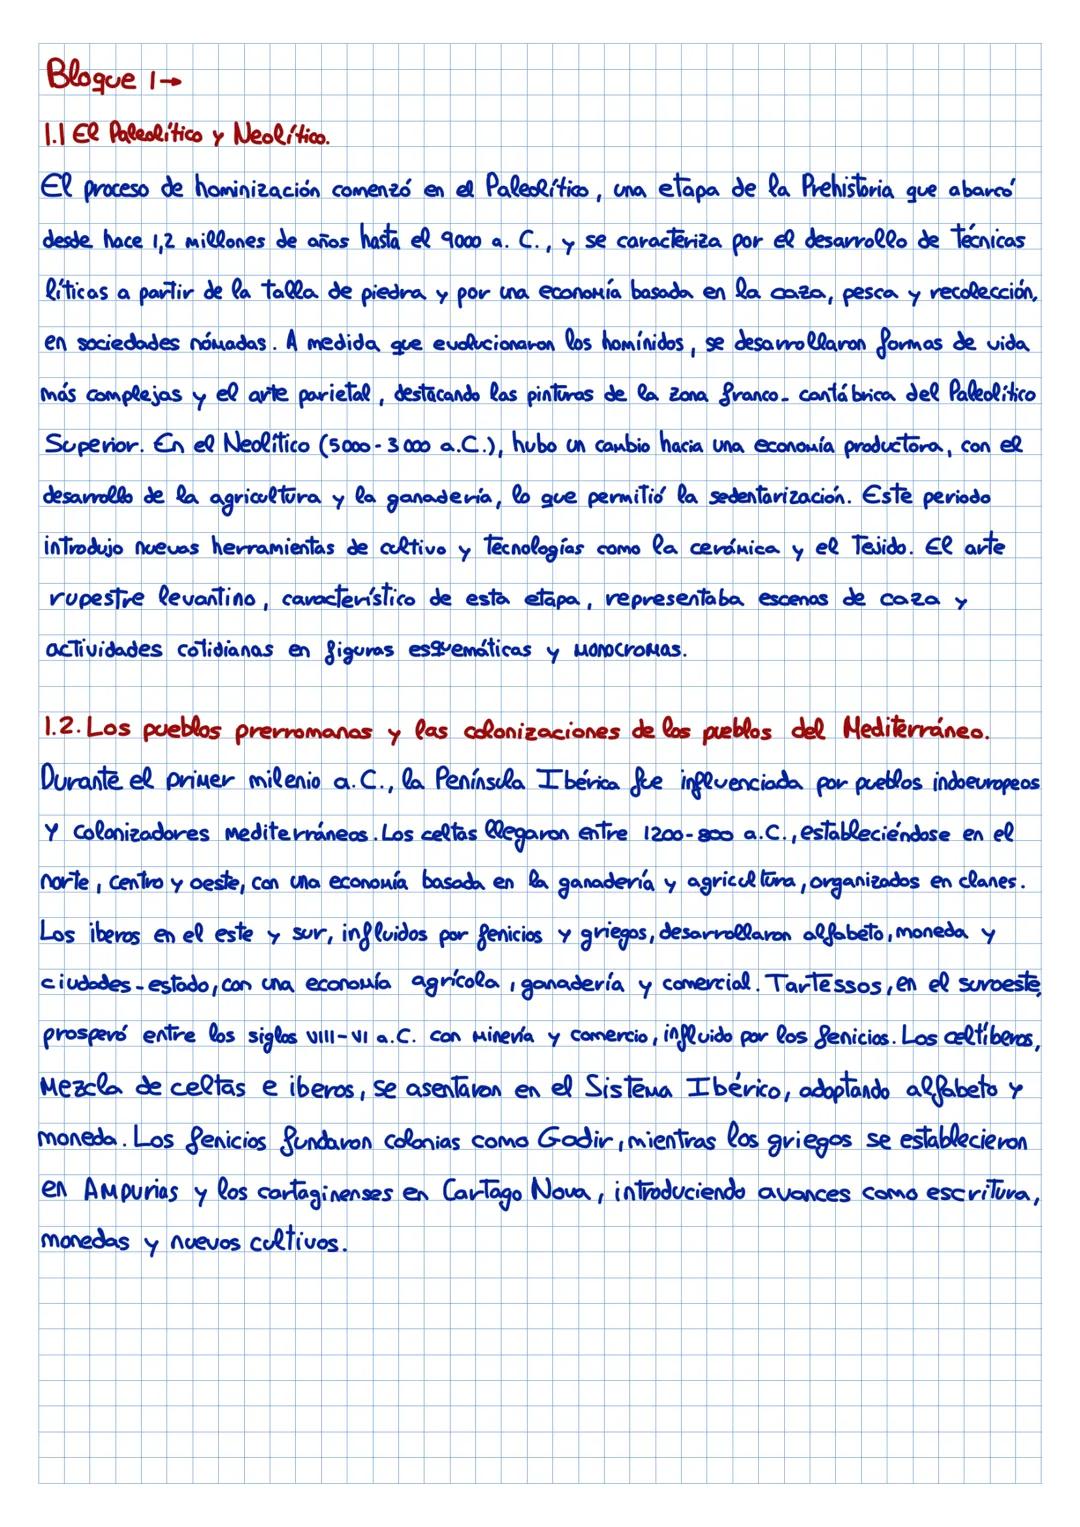 Bloque 1→
1.1 El Paleolítico y Neolítico.
El proceso de hominización comenzó en el Paleolítico, una etapa de la Prehistoria que abarcó
desde hace 1,2 millones de años hasta el 9000 a. C., y se caracteriza por el desarrollo de técnicas
líticas a partir de la talla de piedra y por una economía basada en la caza, pesca y recolección,
en sociedades nómadas. A medida que evolucionaron los homínidos, se desarrollaron formas de vida
más complejas y el arte parietal, destacando las pinturas de la zona franco-cantábrica del Paleolítico
Superior. En el Neolítico (5000-3000 a.C.), hubo un cambio hacia una economía productora, con el
desarrollo de la agricultura y la ganadería, lo que permitió la sedentarización. Este periodo
introdujo nuevas herramientas de cultivo y tecnologías como la cerámica y el tejido. El arte
rupestre levantino, característico de esta etapa, representaba escenas de caza y
actividades cotidianas en figuras esquemáticas y monocromas.
1.2. Los pueblos prerromanos y las colonizaciones de los pueblos del Mediterráneo.
Durante el primer milenio a.C., la Península Ibérica fue influenciada por pueblos indoeuropeos
y colonizadores mediterráneos. Los celtas llegaron entre 1200-800 a.C., estableciéndose en el
norte, centro y oeste, con una economía basada en la ganadería y agricultura, organizados en clanes.
Los iberos en el este y sur, influidos por fenicios y griegos, desarrollaron alfabeto, moneda y
ciudades-estado, con una economía agrícola, ganadería y comercial. Tartessos, en el suroeste,
prosperó entre los siglos VIII-VI a.C. con minería y comercio, influido por los fenicios. Los celtíberos,
mezcla de celtas e iberos, se asentaron en el Sistema Ibérico, adoptando alfabeto y
moneda. Los fenicios fundaron colonias como Gadir, mientras los griegos se establecieron
en Ampurias y los cartaginenses en Cartago Nova, introduciendo avances como escritura,
monedas y nuevos cultivos.